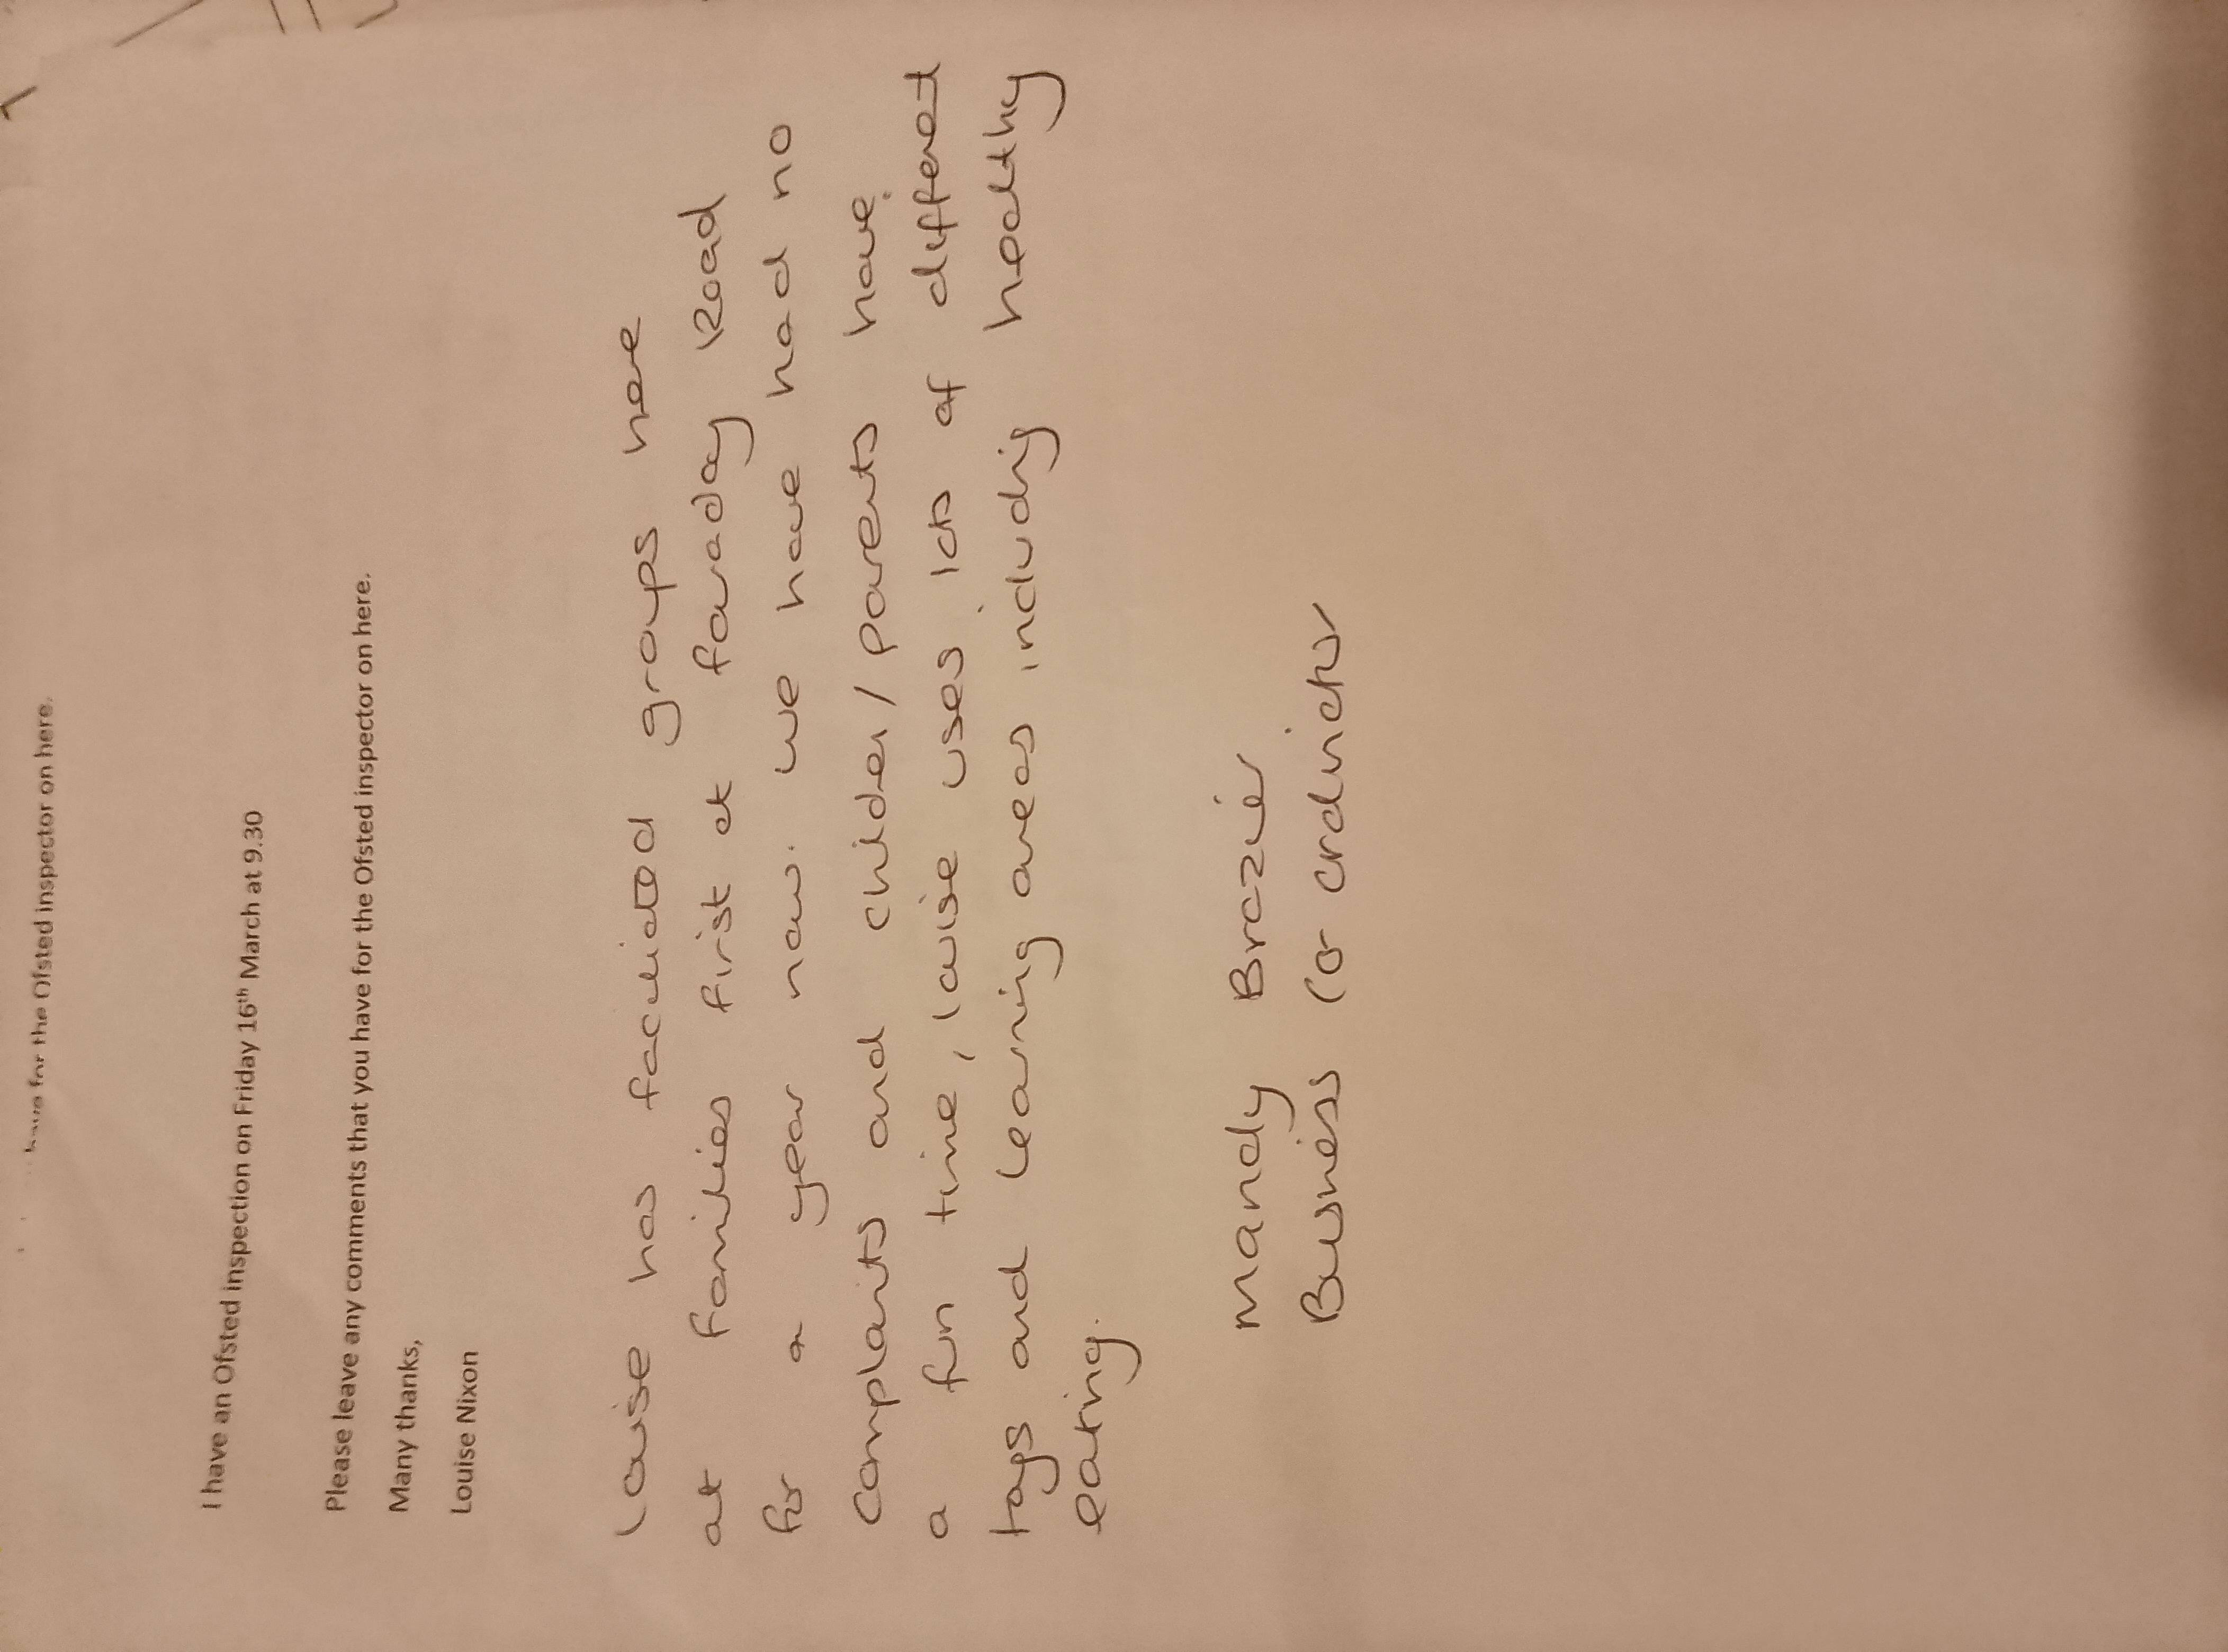 for the Ofsted inspector on here.
I have an Ofsted inspection on Friday 16th March at 9.30
Please leave any comments that you have for the Ofsted inspector on here.
Many thanks,
Louise Nixon
Louise has facilitated groups here
at families first at faraday Road
for a year now. we have had no
complaints and children/parents have
a fun time, louise uses lots of different
toys and learning areas including healthy
eating.
Mandy Brazier
Business Co ordinator